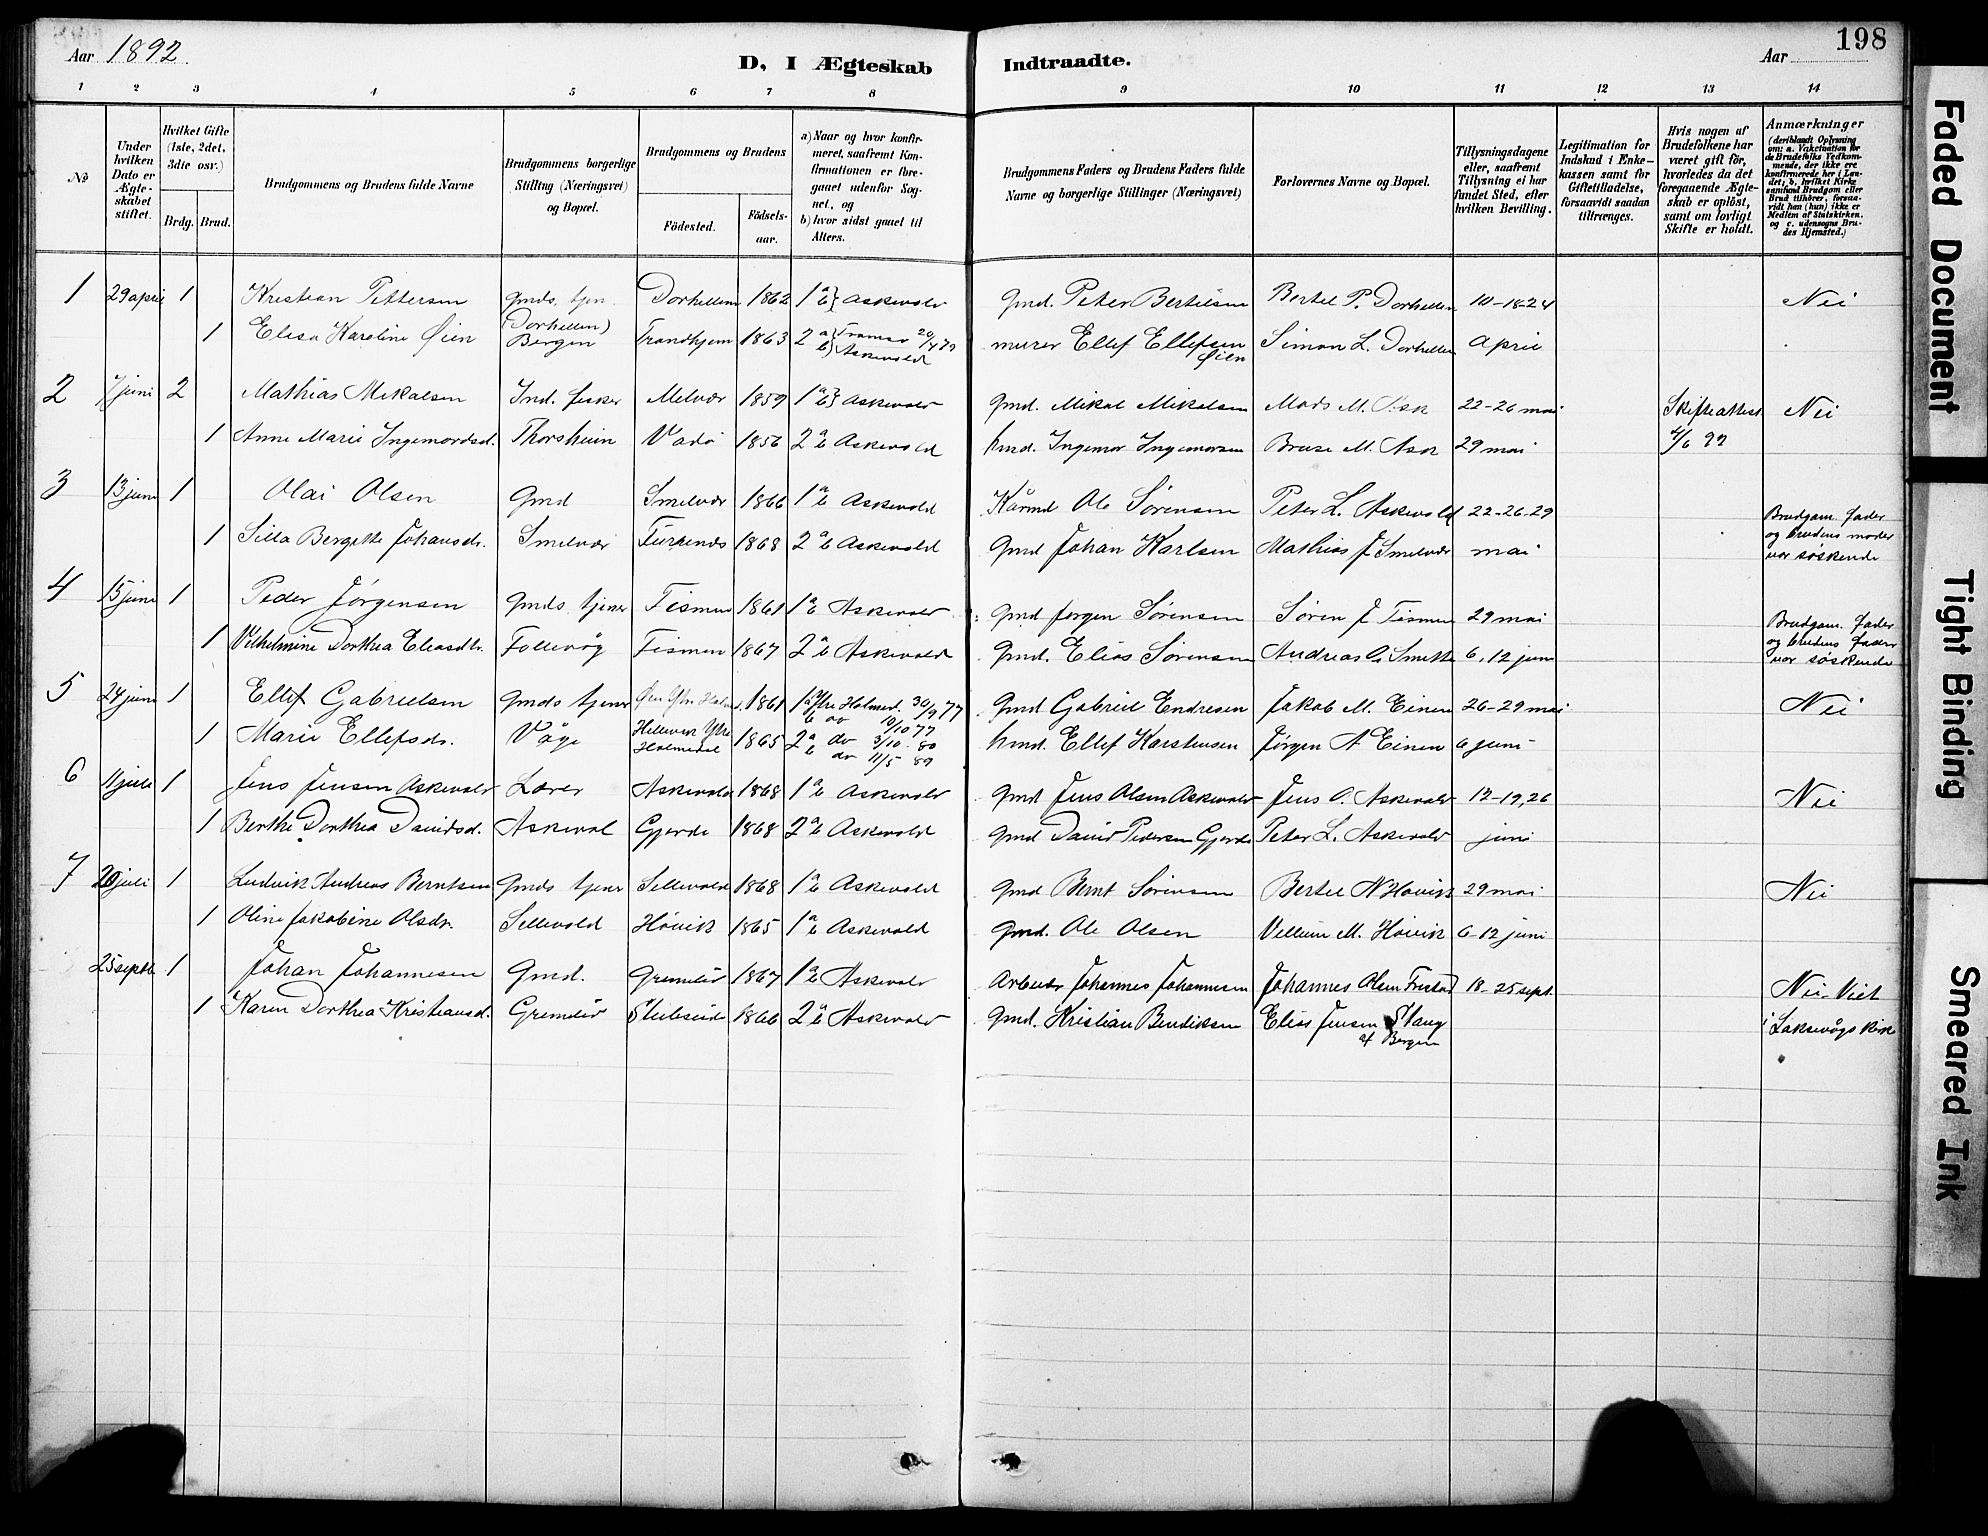 Aar 1892.
D, I Ægteskab
Indtraadte.
Aar
198
1 2 3 4 5 6 7 8 9 10 11 12 13 14
№
Under hvilken Dato er Ægteskabet stiftet.
Hvilket Gifte (1ste, 2det, 3die osv.)
Brdg. Brud.
Brudgommens og Brudens fulde Navne
Brudgommens borgerlige Stilling (Næringsvei) og Bopæl.
Brudgommens og Brudens
Fødested.
Fødselsaar.
a) Naar og hvor konfirmeret, saafremt Konfirmationen er foregaaet udenfor Sognet, og
b) hvor sidst gaaet til Alters.
Brudgommens Faders og Brudens Faders fulde Navne og borgerlige Stillinger (Næringsvei)
Forlovernes Navne og Bopæl.
Tillysningsdagene eller, saafremt Tillysning ei har fundet Sted, efter hvilken Bevilling.
Legitimation for Indskud i Enkekassen samt for Giftetilladelse, forsaavidt saadan tiltrænges.
Hvis nogen af Brudefolkene har været gift før, hvorledes da det foregaaende Ægteskab er opløst, samt om lovligt Skifte er holdt.
Anmærkninger (deriblandt Oplysning om: a. Vakcination for de Brudefolks Vedkommende, der ikke ere konfirmerede her i Landet; b. hvilket Kirkesamfund Brudgom eller Brud tilhører, forsaavidt han (hun) ikke er Medlem af Statskirken, og c. udensogns Brudes Hjemsted.)
1 29 april 1 Kristian Pettersen gmds. tjen. Dorhellem 1862 1 a b } Askevold gmd. Peter Bertilsen Bertel P. Dorhellen 10-18-24 Nei
1 Elisa Karoline Øien (Dorhellen) Bergen Trondhjem 1863 2 a b } Tromsø 20/4 79 Askevold murer Ellef Ellefsen Øien Simon L. Dorhellen april
2 7 juni 2 Mathias Mikalsen Ind. fisker Melvær 1859 1 a b } Askevold gmd. Mikal Mikalsen Mads M. Ask 22-26 mai Skifteattest Nei
1 Anne Marie Ingemordsd. Thorsheim Vadø 1856 2 a b Askevold hmd. Ingemor Ingemorsen Bruse M. Ask 29 mai 4/6 92
3 13 juni 1 Olai Olsen gmd Smelvær 1866 1 a b Askevold Kårmd Ole Sørensen Peter L. Askevold 22-26-29 Brudgom. fader
1 Silla Bergitte Johansdr. Smelvær Furenes 1868 2 a b Askevold gmd Johan Karlsen Mathias J Smelvær mai og brudens moder var søskende
4 15 juni 1 Peder Jørgensen gmds. tjener Tismen 1861 1 a b Askevold gmd Jørgen Sørensen Søren J Tismen 29 mai Brudgom. fader
1 Vilhelmine Dorthea Eliasdtr. Follevåg Tismen 1867 2 a b Askevold gmd. Elias Sørensen Andreas O. Smette 6, 12 juni og brudens fader var søskende
5 24 juni 1 Ellef Gabrielsen gmds tjener Øen Ytre Holm. 1861 1 a Ytre Holmed. 30/9 77 b do 10/10 77 gmd Gabriel Endresen Jakob M. Einen 26-29 mai Nei
1 Marie Ellefsdr. Våge Hellevik Ytre Holmedal 1865 2 a do 3/10 80 b do 11/5 89 hmd. Ellef Karstensen Jørgen A Einen 6 juni
6 11 juli 1 Jens Jensen Askevold Lærer Askevold 1868 1 a b Askevold gmd Jens Olsen Askevold Jens O. Askevold 12-19,26 Nei
1 Berthe Dorthea Davidsd. Askevol Gjerde 1868 2 a b Askevold gmd David Pedersen Gjerde Peter L. Askevold juni
7 20 juli 1 Ludvik Andreas Berntsen gmds tjener Sellevold 1868 1 a b Askevold gmd Bernt Sørensen Bertel N Høivik 29 mai Nei
1 Oline Jakobine Olsdr. Sellevold Høivik 1865 1 a b Askevold gmd. Ole Olsen Vellum M. Høivik 6-12 juni
25 septb 1 Johan Johannesen gmd. Gremelid 1867 1 a b Askevold Arbeider Johannes Johannesen Johannes Olsen Frestad 18-25 sept. Nei-Viet
1 Karen Dorthea Kristiansd. Gremelid 1866 2 a b Askevold gmd. Kristian Bendiksen Elias Jensen Stang af Bergen i Laksevågs kirke
Faded Document
Tight Binding
Smeared Ink